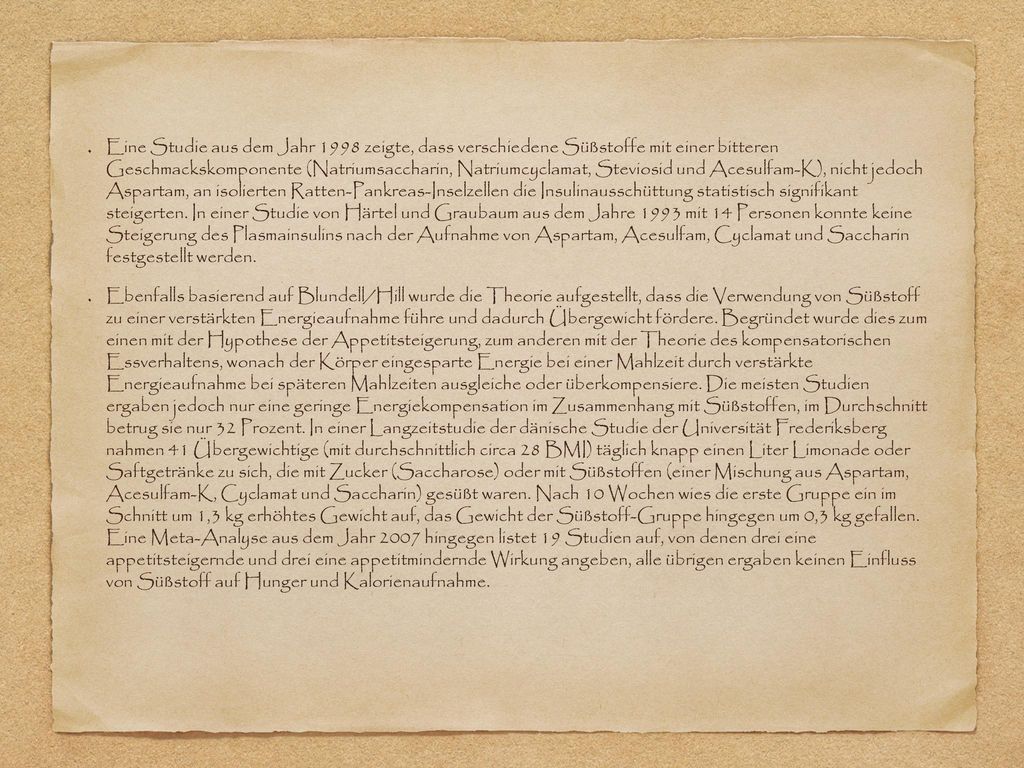 . Eine Studie aus dem Jahr 1998 zeigte, dass verschiedene Süßstoffe mit einer bitteren
Geschmackskomponente (Natriumsaccharin, Natriumcyclamat, Steviosid und Acesulfam-K), nicht jedoch
Aspartam, an isolierten Ratten-Pankreas-Inselzellen die Insulinausschüttung statistisch signifikant
steigerten. In einer Studie von Härtel und Graubaum aus dem Jahre 1993 mit 14 Personen konnte keine
Steigerung des Plasmainsulins nach der Aufnahme von Aspartam, Acesulfam, Cyclamat und Saccharin
festgestellt werden.
. Ebenfalls basierend auf Blundell/Hill wurde die Theorie aufgestellt, dass die Verwendung von Süßstoff
zu einer verstärkten Energieaufnahme führe und dadurch Übergewicht fördere. Begründet wurde dies zum
einen mit der Hypothese der Appetitsteigerung, zum anderen mit der Theorie des kompensatorischen
Essverhaltens, wonach der Körper eingesparte Energie bei einer Mahlzeit durch verstärkte
Energieaufnahme bei späteren Mahlzeiten ausgleiche oder überkompensiere. Die meisten Studien
ergaben jedoch nur eine geringe Energiekompensation im Zusammenhang mit Süßstoffen, im Durchschnitt
betrug sie nur 32 Prozent. In einer Langzeitstudie der dänische Studie der Universität Frederiksberg
nahmen 41 Übergewichtige (mit durchschnittlich circa 28 BMI) täglich knapp einen Liter Limonade oder
Saftgetränke zu sich, die mit Zucker (Saccharose) oder mit Süßstoffen (einer Mischung aus Aspartam,
Acesulfam-K, Cyclamat und Saccharin) gesüßt waren. Nach 10 Wochen wies die erste Gruppe ein im
Schnitt um 1,3 kg erhöhtes Gewicht auf, das Gewicht der Süßstoff-Gruppe hingegen um 0,3 kg gefallen.
Eine Meta-Analyse aus dem Jahr 2007 hingegen listet 19 Studien auf, von denen drei eine
appetitsteigernde und drei eine appetitmindernde Wirkung angeben, alle übrigen ergaben keinen Einfluss
von Süßstoff auf Hunger und Kalorienaufnahme.